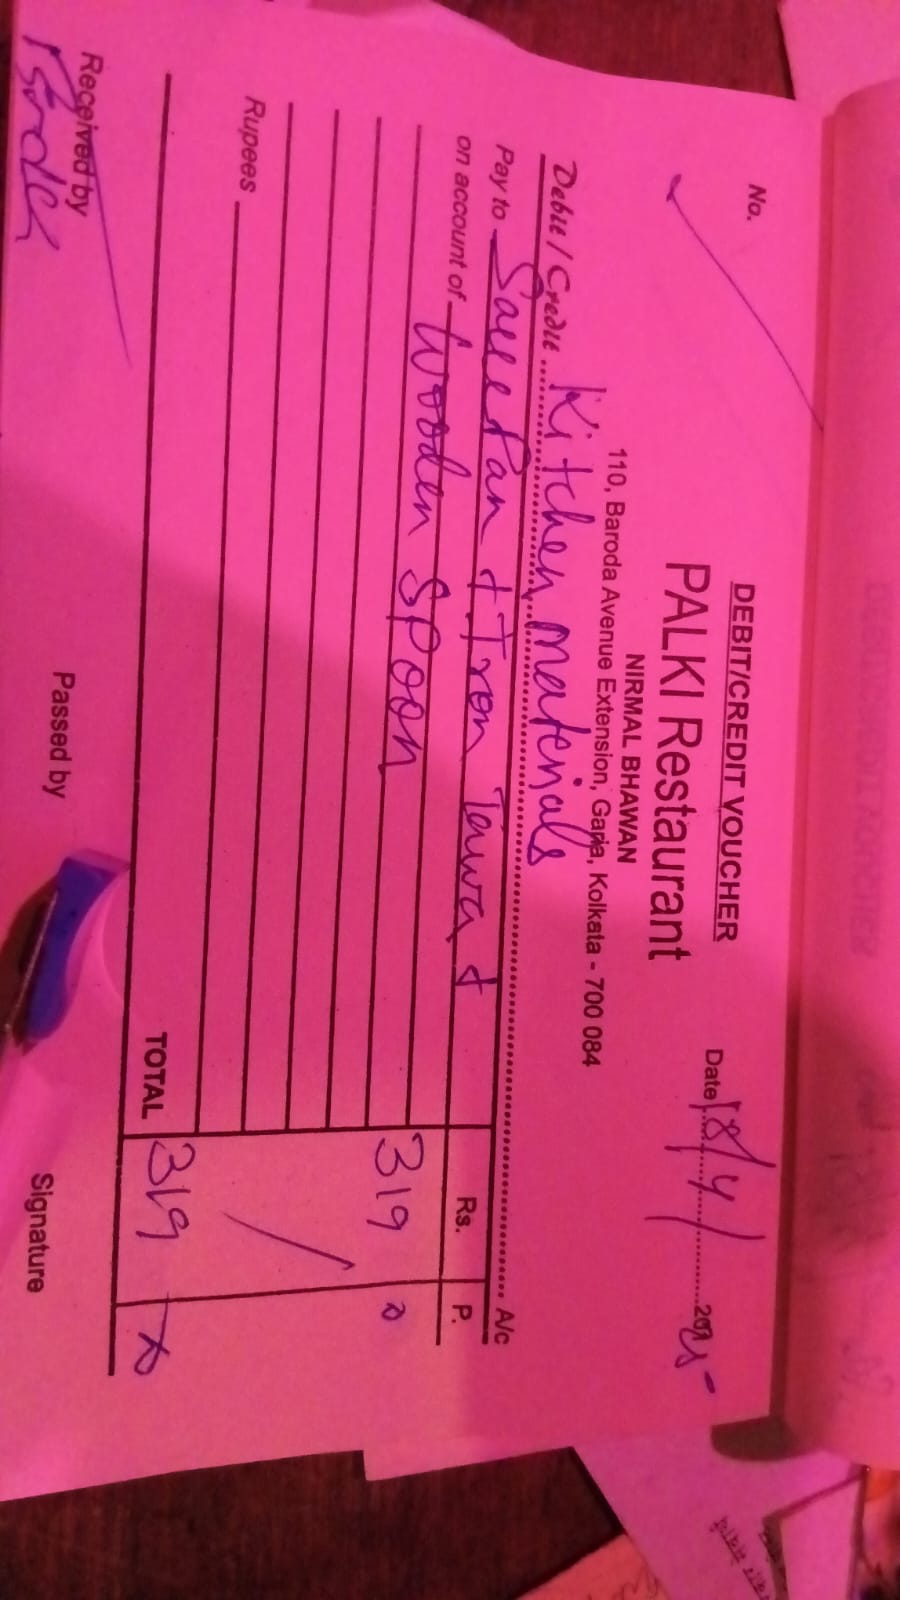 DEBIT/CREDIT VOUCHER
No.
PALKI Restaurant
Date 18/4/ 2025
NIRMAL BHAWAN
110, Baroda Avenue Extension, Garia, Kolkata - 700 084
Debit / Credit Kitchen materials A/c
Pay to Sauce Pan + Iron Tawa + Rs. P.
on account of Wooden SPoon
319
Rupees
TOTAL 319
Received by Passed by Signature